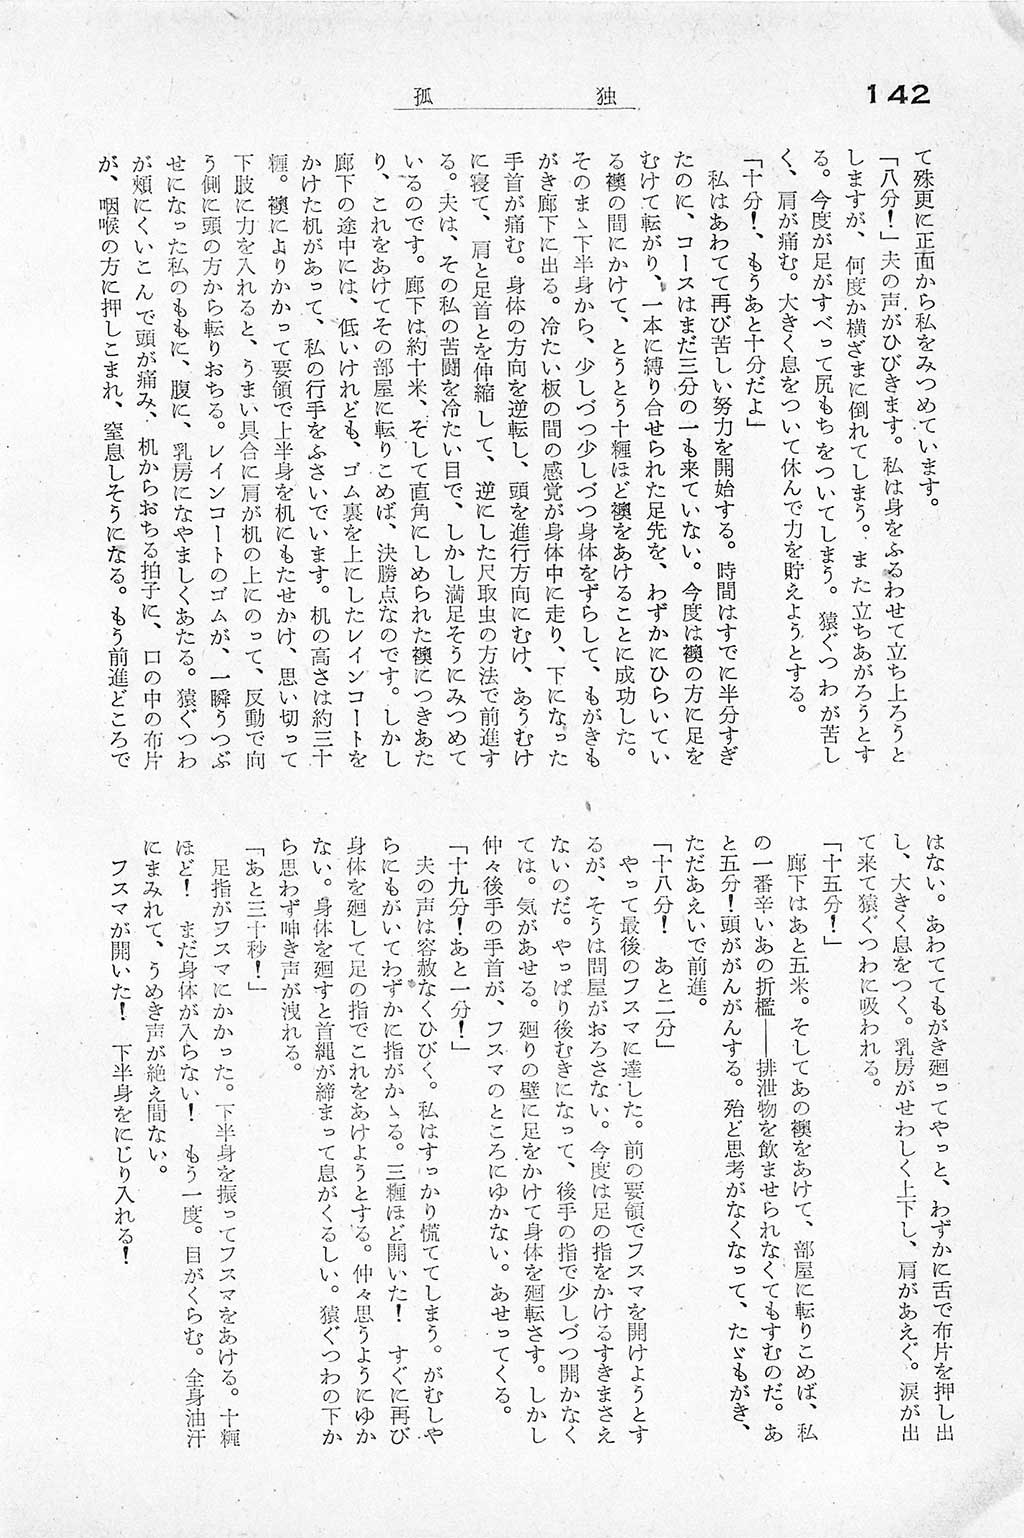 142
孤独
て殊更に正面から私をみつめています。
「八分！」夫の声がひびきます。私は身をふるわせて立ち上ろうと
しますが、何度か横ざまに倒れてしまう。また立ちあがろうとす
る。今度が足がすべって尻もちをついてしまう。猿ぐつわが苦し
く、肩が痛む。大きく息をついて休んで力を貯えようとする。
「十分！、もうあと十分だよ」
私はあわてて再び苦しい努力を開始する。時間はすでに半分すぎ
たのに、コースはまだ三分の一も来ていない。今度は襖の方に足を
むけて転がり、一本に縛り合せられた足先を、わずかにひらいてい
る襖の間にかけて、とうとう十糎ほど襖をあけることに成功した。
そのまゝ下半身から、少しづつ少しづつ身体をずらして、もがきも
がき廊下に出る。冷たい板の間の感覚が身体中に走り、下になった
手首が痛む。身体の方向を逆転し、頭を進行方向にむけ、あうむけ
に寝て、肩と足首とを伸縮して、逆にした尺取虫の方法で前進す
る。夫は、その私の苦闘を冷たい目で、しかし満足そうにみつめて
いるのです。廊下は約十米、そして直角にしめられた襖につきあた
り、これをあけてその部屋に転りこめば、決勝点なのです。しかし
廊下の途中には、低いけれども、ゴム裏を上にしたレインコートを
かけた机があって、私の行手をふさいでいます。机の高さは約三十
糎。襖によりかかって要領で上半身を机にもたせかけ、思い切って
下肢に力を入れると、うまい具合に肩が机の上にのって、反動で向
う側に頭の方から転りおちる。レインコートのゴムが、一瞬うつぶ
せになった私のももに、腹に、乳房になやましくあたる。猿ぐつわ
が頬にくいこんで頭が痛み、机からおちる拍子に、口の中の布片
が、咽喉の方に押しこまれ、窒息しそうになる。もう前進どころで
はない。あわててもがき廻ってやっと、わずかに舌で布片を押し出
し、大きく息をつく。乳房がせわしく上下し、肩があえぐ。涙が出
て来て猿ぐつわに吸われる。
「十五分！」
廊下はあと五米。そしてあの襖をあけて、部屋に転りこめば、私
の一番辛いあの折檻――排泄物を飲ませられなくてもすむのだ。あ
と五分！頭ががんがんする。殆ど思考がなくなって、たゞもがき、
ただあえいで前進。
「十八分！　あと二分」
やって最後のフスマに達した。前の要領でフスマを開けようとす
るが、そうは問屋がおろさない。今度は足の指をかけるすきまさえ
ないのだ。やっぱり後むきになって、後手の指で少しづつ開かなく
ては。気があせる。廻りの壁に足をかけて身体を廻転さす。しかし
仲々後手の手首が、フスマのところにゆかない。あせってくる。
「十九分！あと一分！」
夫の声は容赦なくひびく。私はすっかり慌ててしまう。がむしゃ
らにもがいてわずかに指がかゝる。三糎ほど開いた！　すぐに再び
身体を廻して足の指でこれをあけようとする。仲々思うようにゆか
ない。身体を廻すと首縄が締まって息がくるしい。猿ぐつわの下か
ら思わず呻き声が洩れる。
「あと三十秒！」
足指がフスマにかかった。下半身を振ってフスマをあける。十糎
ほど！　まだ身体が入らない！　もう一度。目がくらむ。全身油汗
にまみれて、うめき声が絶え間ない。
フスマが開いた！　下半身をにじり入れる！